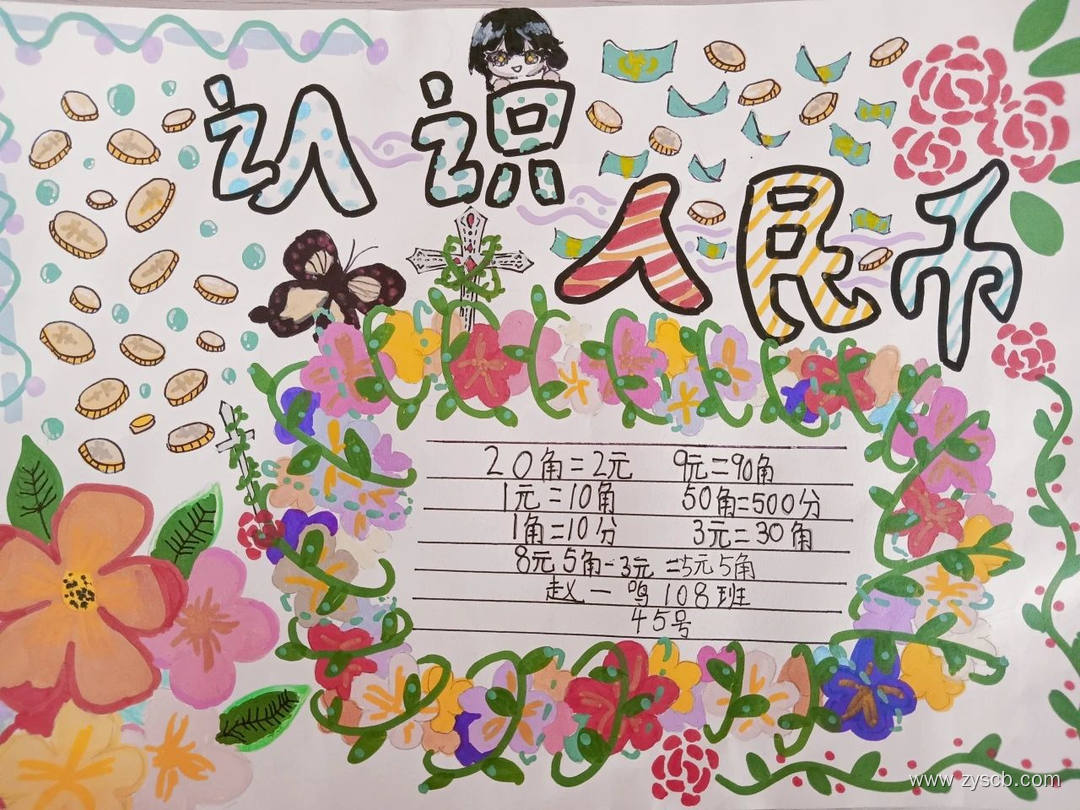 认识
人民币
20角=2元 9元=90角
1元=10角 50角=500分
1角=10分 3元=30角
8元5角-3元=5元5角
赵一鸣108班
45号
www.zyscb.com